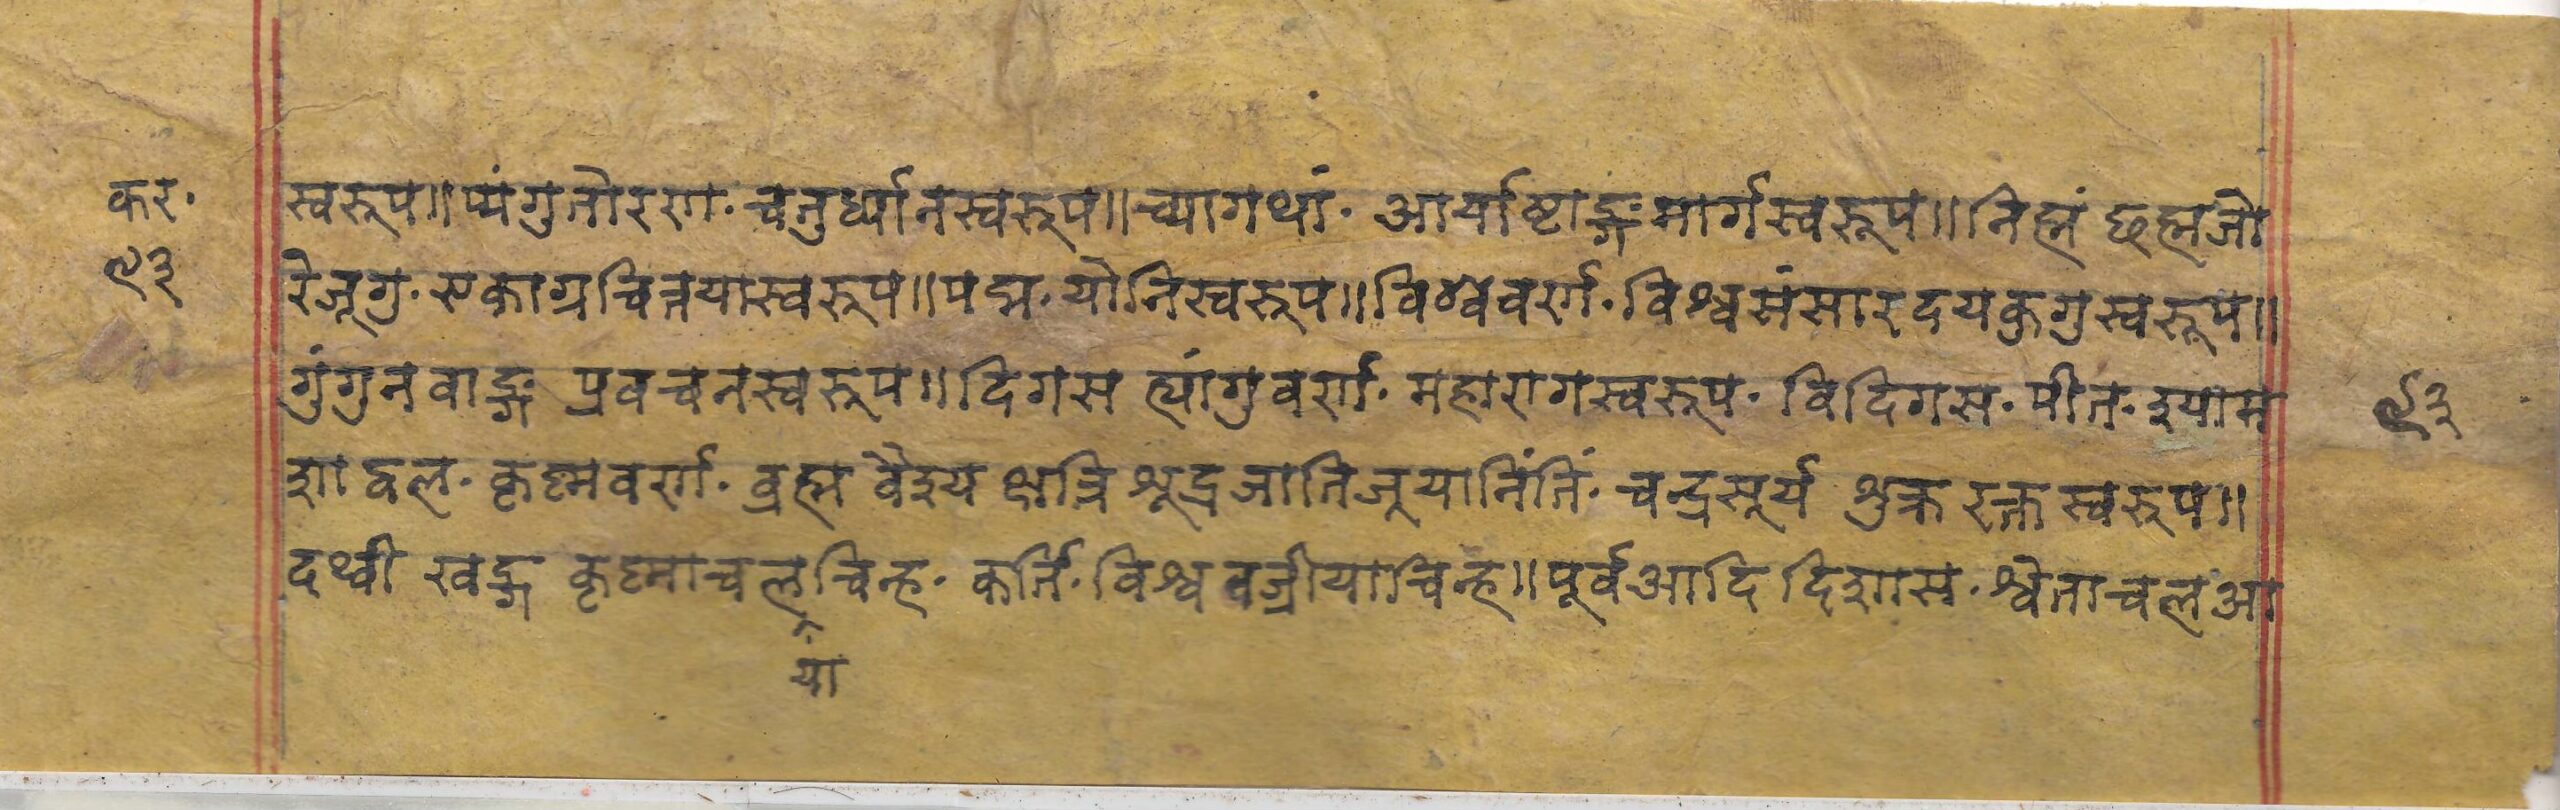 कर॰
९३
स्वरूप॥ प्यंगु तोरण॰ चतुर्ध्यानस्वरूप॥ च्यागथां॰ आर्याष्टाङ्गमार्गस्वरूप॥ निह्मं छह्मजो
रेजूगु॰ एकाग्रचित्तयास्वरूप॥ पद्म॰ योनिस्वरूप॥ विश्ववर्ण॰ विश्वसंसारदयकुगुस्वरूप॥
गुंगु नवाङ्ग प्रवचनस्वरूप॥ दिगस ह्यांगुवर्ण॰ महारागस्वरूप॰ विदिगस॰ पीत॰ श्याम
९३
शाद्वल॰ कृष्णवर्ण॰ ब्रह्म वैश्य क्षत्रि शूद्रजातिजूयानिंतिं॰ चन्द्रसूर्य शुक्र रक्तस्वरूप॥
दथ्वी खड्ग कृष्णाचलचिन्ह॰ कर्ति॰ विश्ववज्रीयाचिन्ह॥ पूर्वआदि दिशास॰ श्वेताचलआ
या